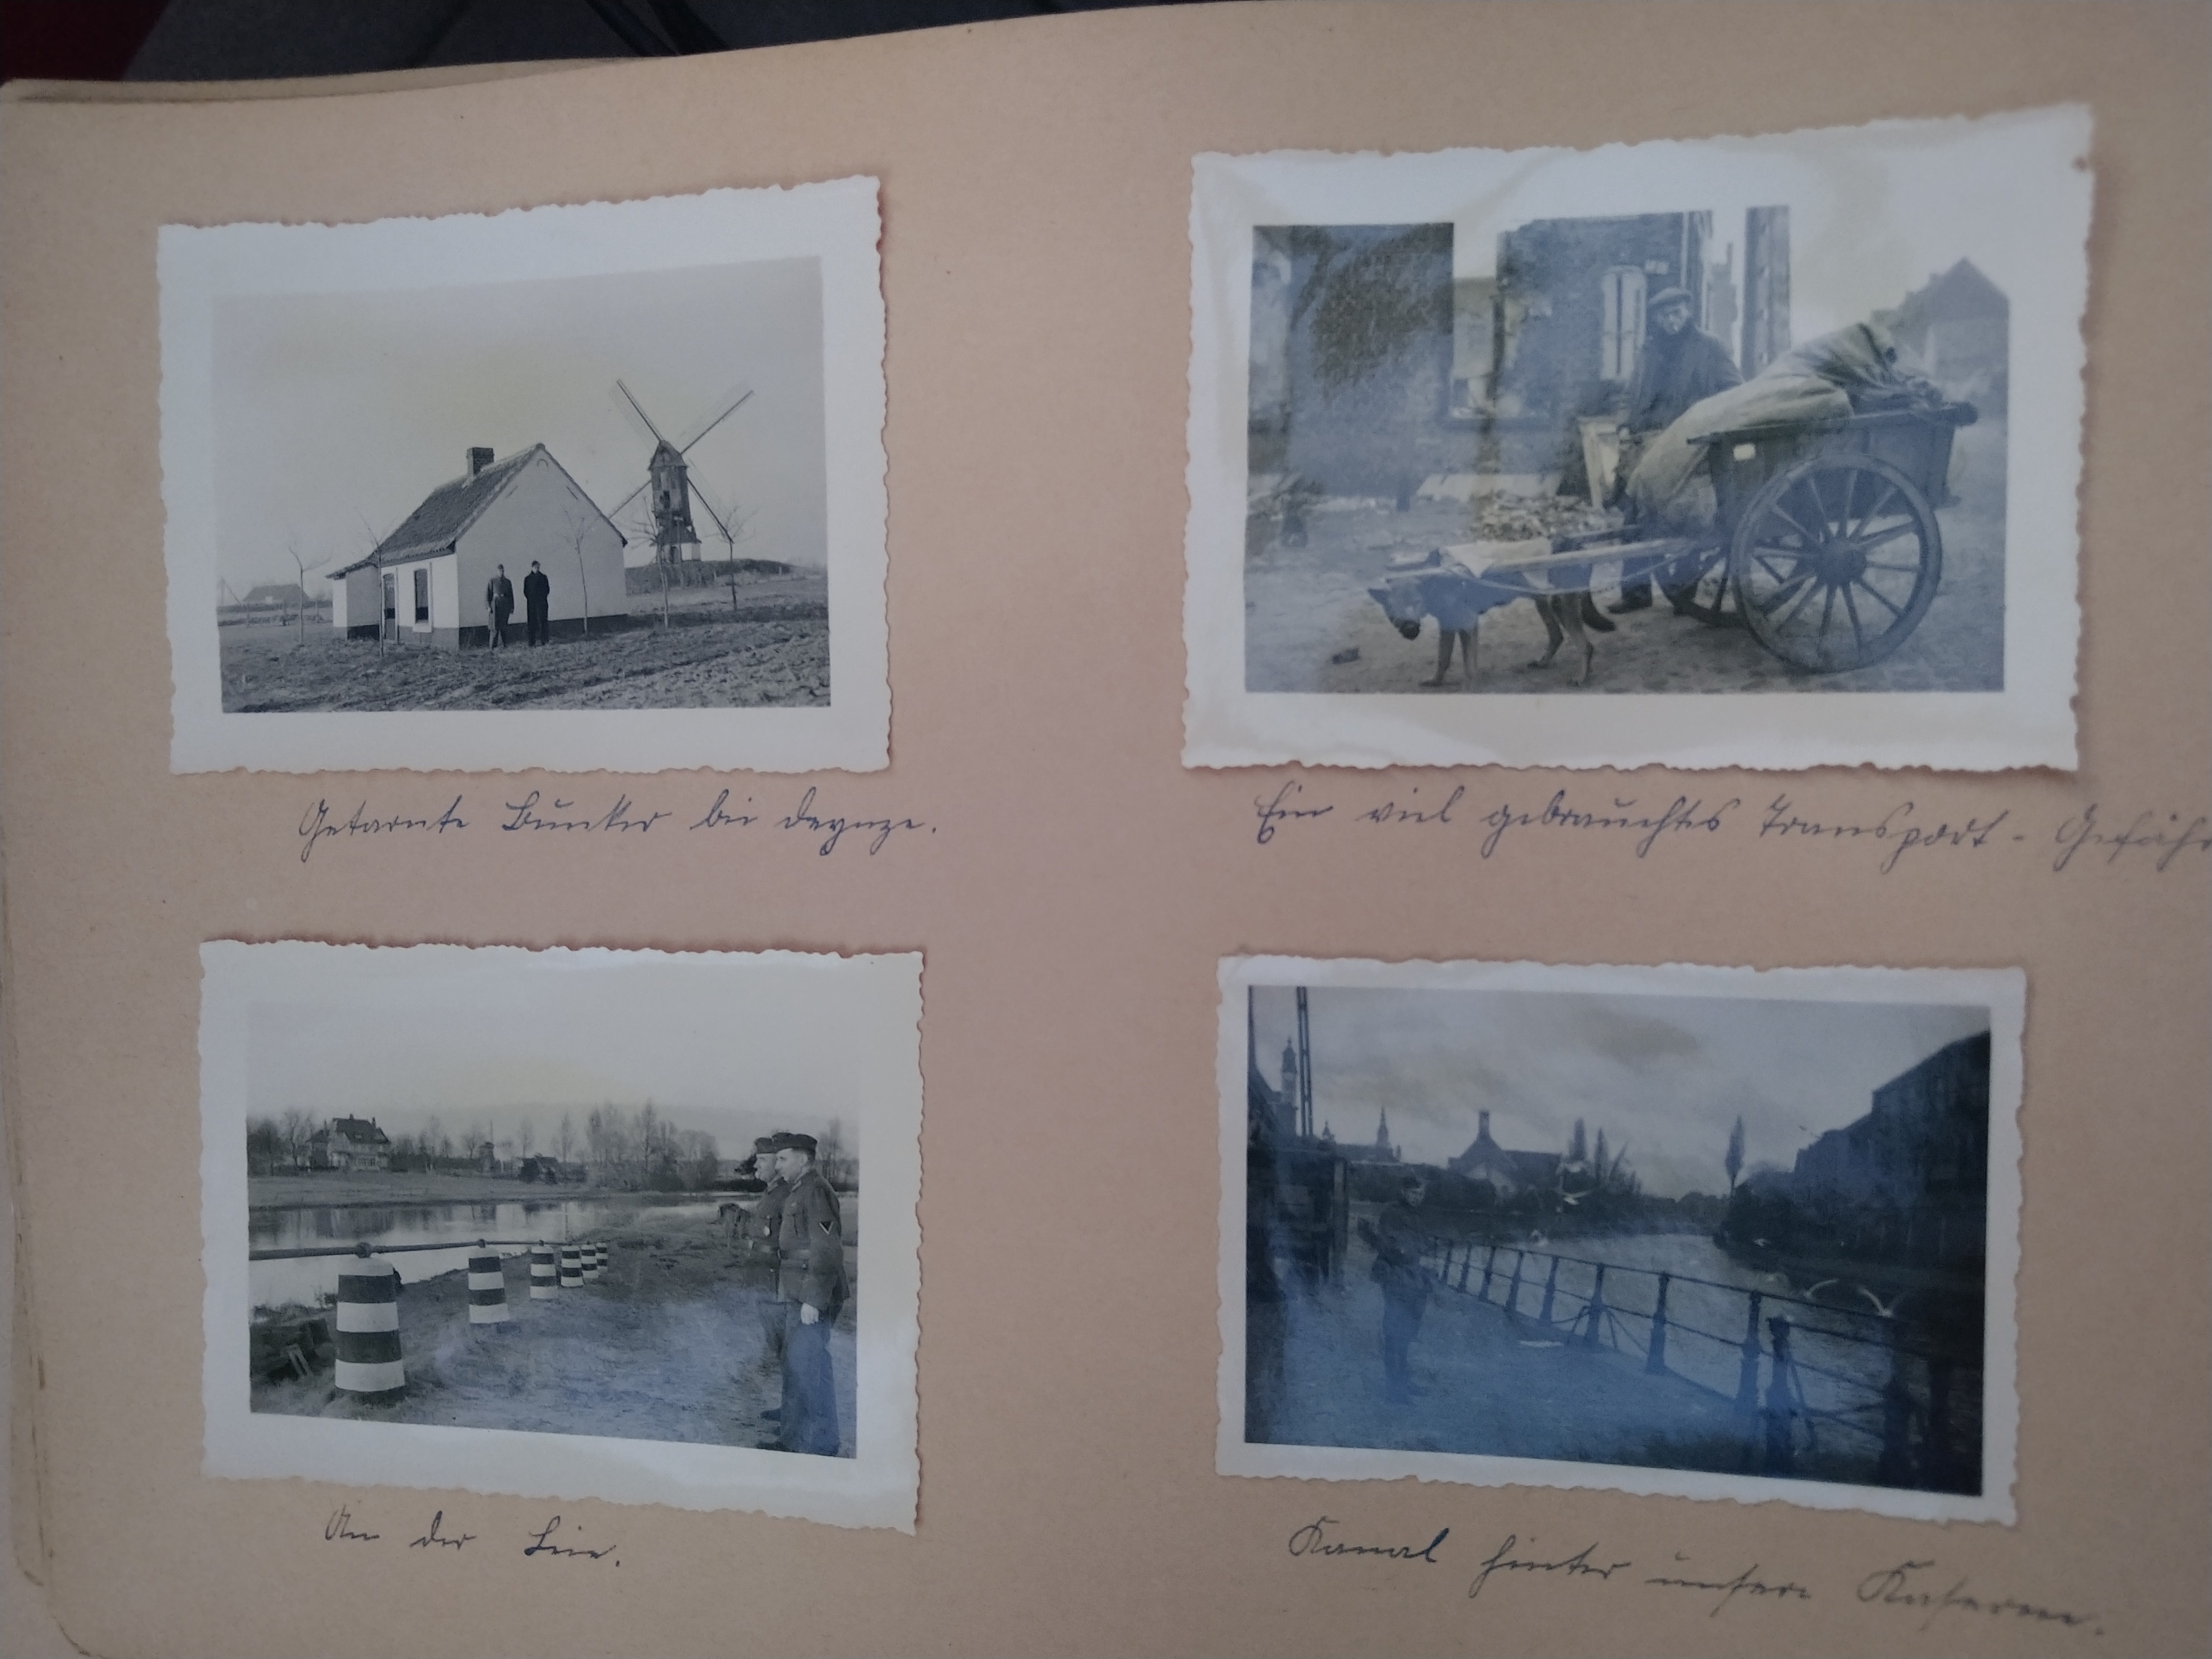 Getarnte Bunker bei Deynze.
Ein viel gebrauchtes Transport-Gefähr
An der Leie.
Kanal hinter unsere Kaserne.